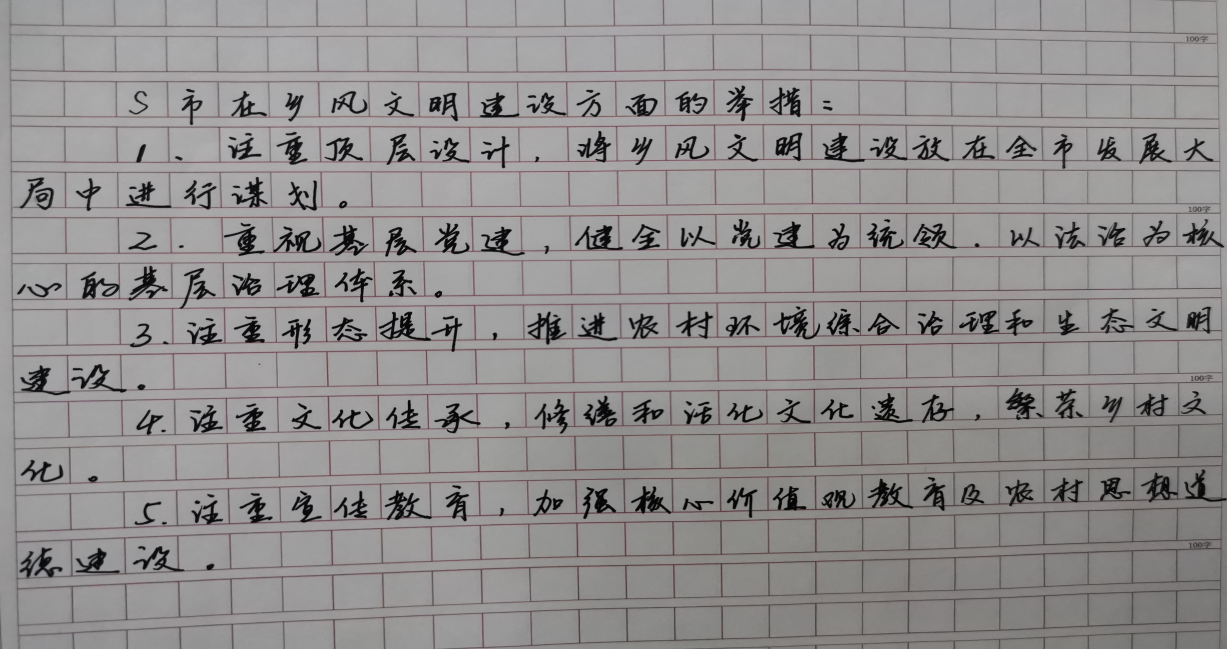 100字
S市在乡风文明建设方面的举措:
1、注重顶层设计,将乡风文明建设放在全市发展大
局中进行谋划。
100字
2.重视基层党建,健全以党建为统领.以法治为核
心的基层治理体系。
3.注重形态提升,推进农村环境综合治理和生态文明
建设。
100字
4.注重文化传承,修缮和活化文化遗存,繁荣乡村文
化。
5.注重宣传教育,加强核心价值观教育及农村思想道
德建设。
100字